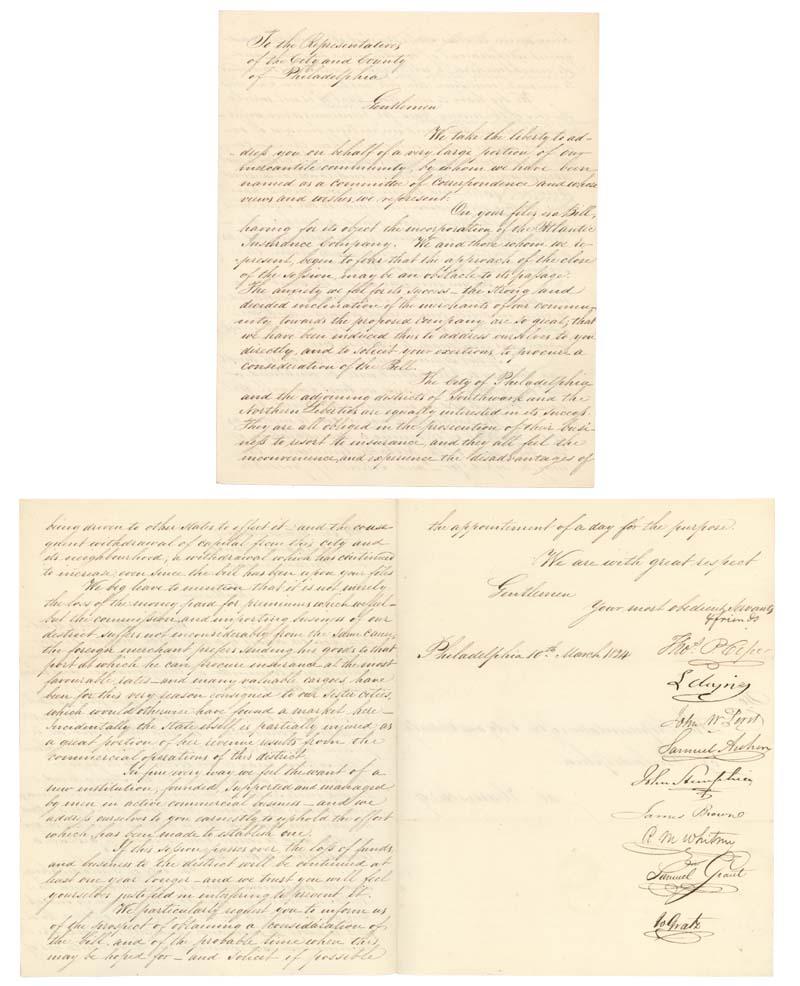 To the Representatives
of the City and County
of Philadelphia
Gentlemen
We take the liberty to ad-
-dress you on behalf of a very large portion of our
mercantile community, by whom we have been
named as a committee of correspondence and whose
views and wishes we represent.
On your files is a Bill,
having for its object the incorporation of the Atlantic
Insurance Company. We and those whom we re-
present, begin to fear that the approach of the close
of the Session, may be an obstacle to its passage.
The anxiety we feel for its success – the strong and
decided inclination of the merchants of our commu-
-nity towards the proposed company are so great, that
we have been induced thus to address ourselves to you
directly, and to solicit your exertions, to procure a
consideration of the Bill.
The City of Philadelphia
and the adjoining districts of Southwark and the
Northern Liberties are equally interested in its success.
They are all obliged in the prosecution of their busi-
ness to resort to insurance, and they all feel the
inconvenience, and experience the disadvantages of
being driven to other States to effect it – and the conse
quent withdrawal of capital from this city and
its neighbourhood; a withdrawal which has continued
to increase even since the bill has been upon your files
We beg leave to mention that it is not merely
the loss of the money paid for premiums which we feel –
but the commission and importing business of our
district suffers not inconsiderably from the same cause,
the foreign merchant prefers sending his goods to that
port at which he can procure insurance at the most
favourable rates – and many valuable cargoes, have
been for this very reason consigned to our Sister Cities,
which would otherwise have found a market here –
Incidentally the State itself is partially injured, as
a great portion of her revenue results from the
commercial operations of this district.
In fine every way we feel the want of a
new institution, founded, supported and managed
by men in active commercial business – and we
address ourselves to you earnestly to uphold the effort
which has been made to establish one.
If this Session passes over the loss of funds
and business to the district will be continued at
least one year longer – and we trust you will feel
yourselves justified in interfering to prevent it.
We particularly request you to inform us
of the prospect of obtaining a consideration of
the bill, and of the probable time when this
may be hoped for – and solicit if possible
the appointement of a day for the purpose.
We are with great respect
Gentlemen
Your most obedient Servants
& friends
Philadelphia 10th March 1824
Thos. P.
John W.
Samuel
John
James Brown
R M Whitney
Samuel Grant
Jo Gratz